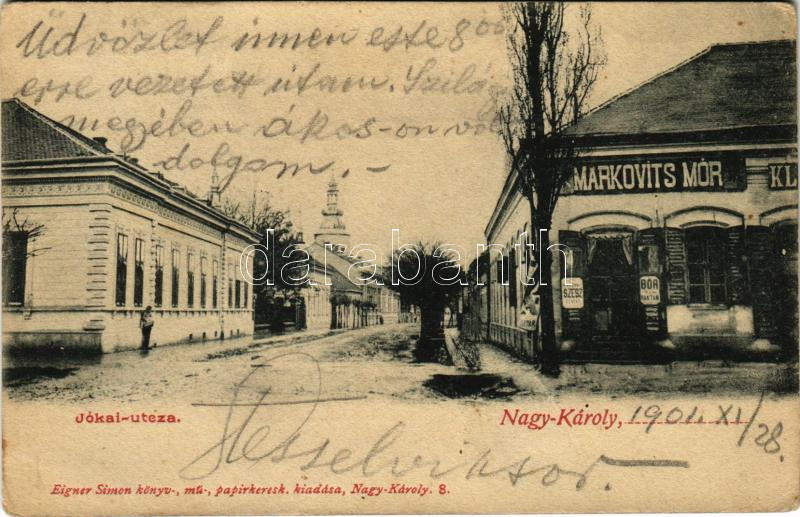 Üdvözlet innen este 8⁰⁰
erre vezetett útam. Szilágy
megyében ákos-on vólt
dolgom. –
MARKOVITS MÓR
KL
SZESZ
BOR
RAKTÁR
darabanth.com
Jókai-utcza.
Nagy-Károly, 1904 XI/28.
Eigner Simon könyv-, mű-, papirkeresk. kiadása, Nagy-Károly. 8.